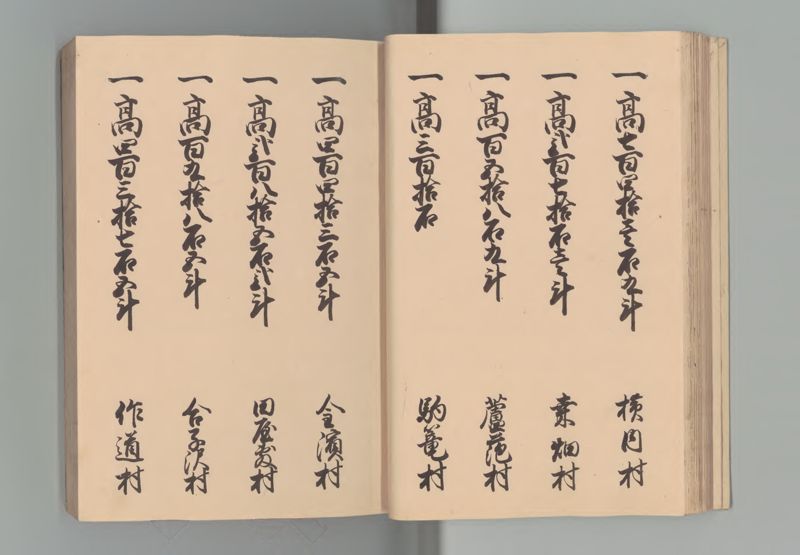 一高七百四拾壱石九斗 横内村
一高弐百七拾石壱斗 桑畑村
一高百五拾八石九斗 蘆萢村
一高三百拾石 駒籠村
一高四百四拾三石五斗 金濱村
一高弐百八拾五石弐斗 田屋敷村
一高百九拾八石五斗 合子沢村
一高四百三拾七石五斗 作道村